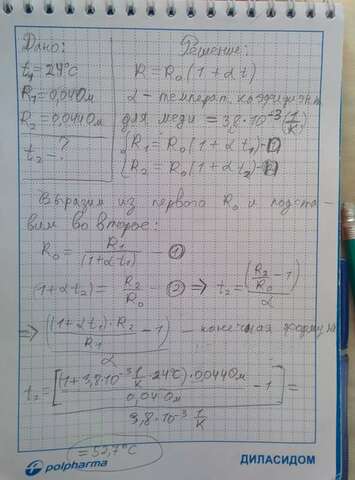 Дано:
t₁ = 24°C
R₁ = 0,040 Ом
R₂ = 0,044 Ом
t₂ - ?
Решение:
R = R₀(1 + αt)
α - температ. коэффициент
для меди = 3,8·10⁻³ (1/К)
{R₁ = R₀(1 + αt₁) - ①
{R₂ = R₀(1 + αt₂) - ②
Выразим из первого R₀ и подста-
вим во второе:
R₀ = R₁/(1+αt₁) - ①
(1+αt₂) = R₂/R₀ - ② ⇒ t₂ = (R₂/R₀ - 1)/α
⇒ ((1+αt₁)·R₂/R₁ - 1)/α - конечная формула
t₂ = [(1+3,8·10⁻³ 1/К · 24°C)·0,044 Ом/0,04 Ом - 1]/3,8·10⁻³ 1/К =
= 52,7°C
polpharma
ДИЛАСИДОМ